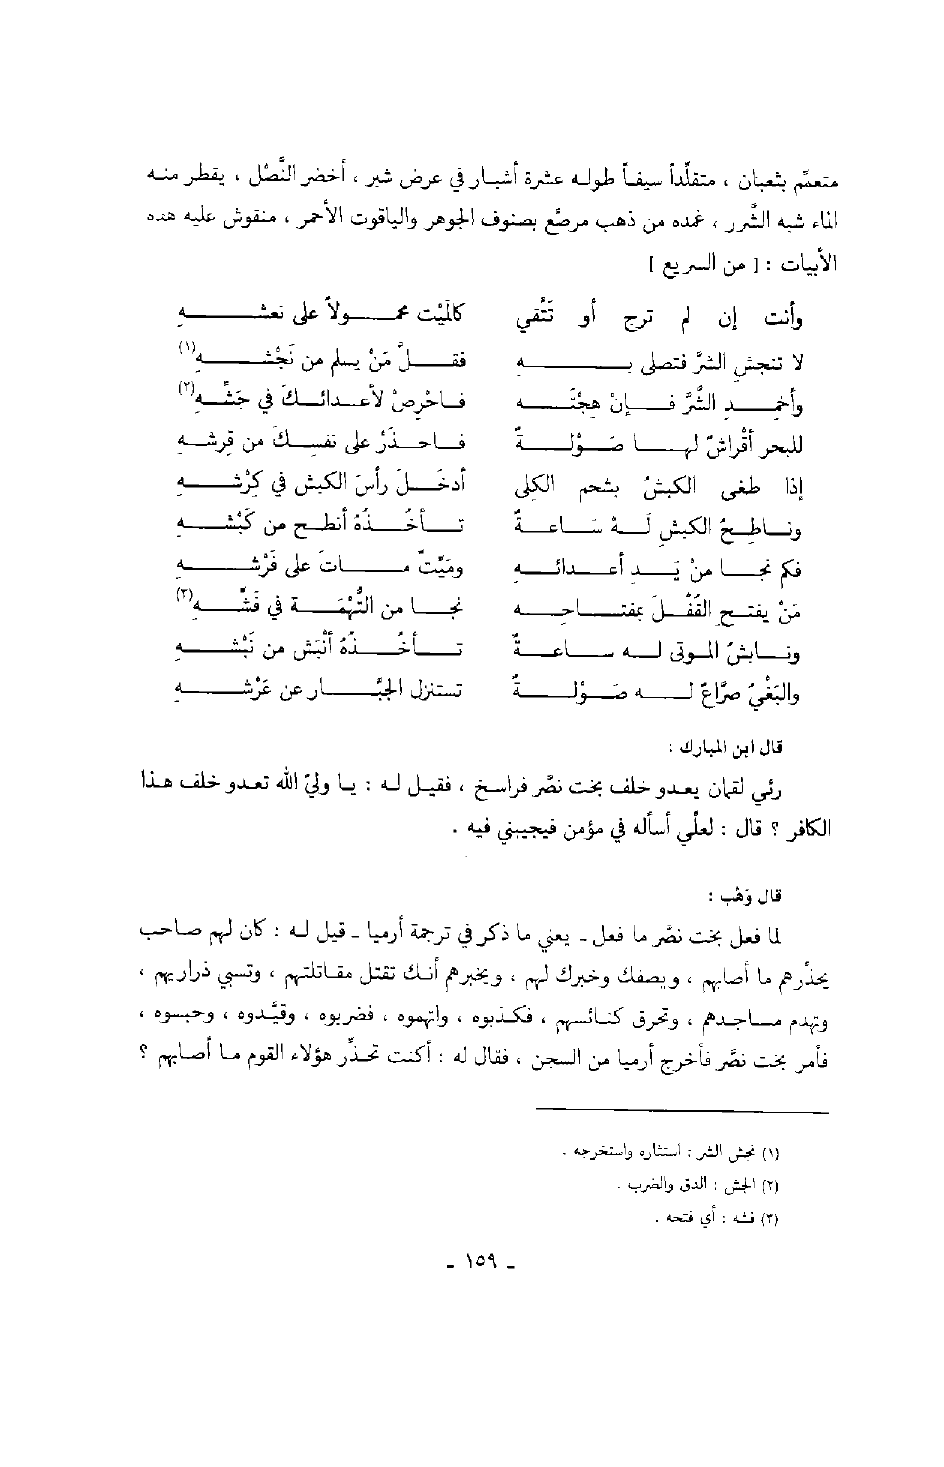 متعمِّم بثعبان ، متقلِّداً سيفاً طوله عشرة أشبار في عرض شبر ، أخضر النَّصْل ، يقطر منه
الماء شبه الشَّرر ، غمده من ذهب مرصَّع بصنوف الجوهر والياقوت الأحمر ، منقوش عليه هذه
الأبيات : [ من السريع ]
وأنت إن لم ترج أو تَتَّقي كالَميْت محمولاً على نعشهِ
لا تنجشِ الشرَّ فتصلى به فقلَّ مَنْ يسلم من نَجْشهِ(١)
وأخمد الشَّرَّ فإنْ هجتَه فاحْرِصْ لأعدائك في جَشِّه(٢)
للبحر أقْراشٌ لها صَوْلةٌ فاحذَرْ على نفسكَ من قِرشهِ
إذا طغى الكبشُ بشحم الكلى أدخَلَ رأسَ الكبش في كِرْشهِ
وناطحُ الكبشِ لَهُ سَاعةٌ تأخُذُهُ أنطح من كَبْشهِ
فكم نجا مَنْ يَد أعدائهِ ومَيِّتٌ ماتَ على فَرْشهِ
مَنْ يفتحِ القُفْلَ بمفتاحه نجا من التُّهْمَة في فَشِّه(٣)
ونابشُ الموتى له ساعةٌ تأخُذُهُ أنْبَش من نَبْشهِ
والبَغْيُ صرَّاعٌ له صَوْلةٌ تستنزل الجبَّار عن عَرْشهِ
قال ابن المبارك :
رئي لقمان يعدو خلف بخت نصَّر فراسخ ، فقيل له : يا وليّ الله تعدو خلف هذا
الكافر ؟ قال : لعلّي أسأله في مؤمن فيجيبني فيه .
قال وَهْب :
لما فعل بخت نصَّر ما فعل ـ يعني ما ذكر في ترجمة أرميا ـ قيل له : كان لهم صاحب
يحذِّرهم ما أصابهم ، ويصفك وخبرك لهم ، ويخبرهم أنك تقتل مقاتلتهم ، وتسبي ذراريهم ،
وتهدم مساجدهم ، وتحرق كنائسهم ، فكذبوه ، واتهموه ، فضربوه ، وقيَّدوه ، وحبسوه ،
فأمر بخت نصَّر فأخرج أرميا من السجن ، فقال له : أكنت تحذِّر هؤلاء القوم ما أصابهم ؟
(١) نجش الشر : استثاره واستخرجه .
(٢) الجش : الدق والضرب .
(٣) فشه : أي فتحه .
ـ ١٥٩ ـ